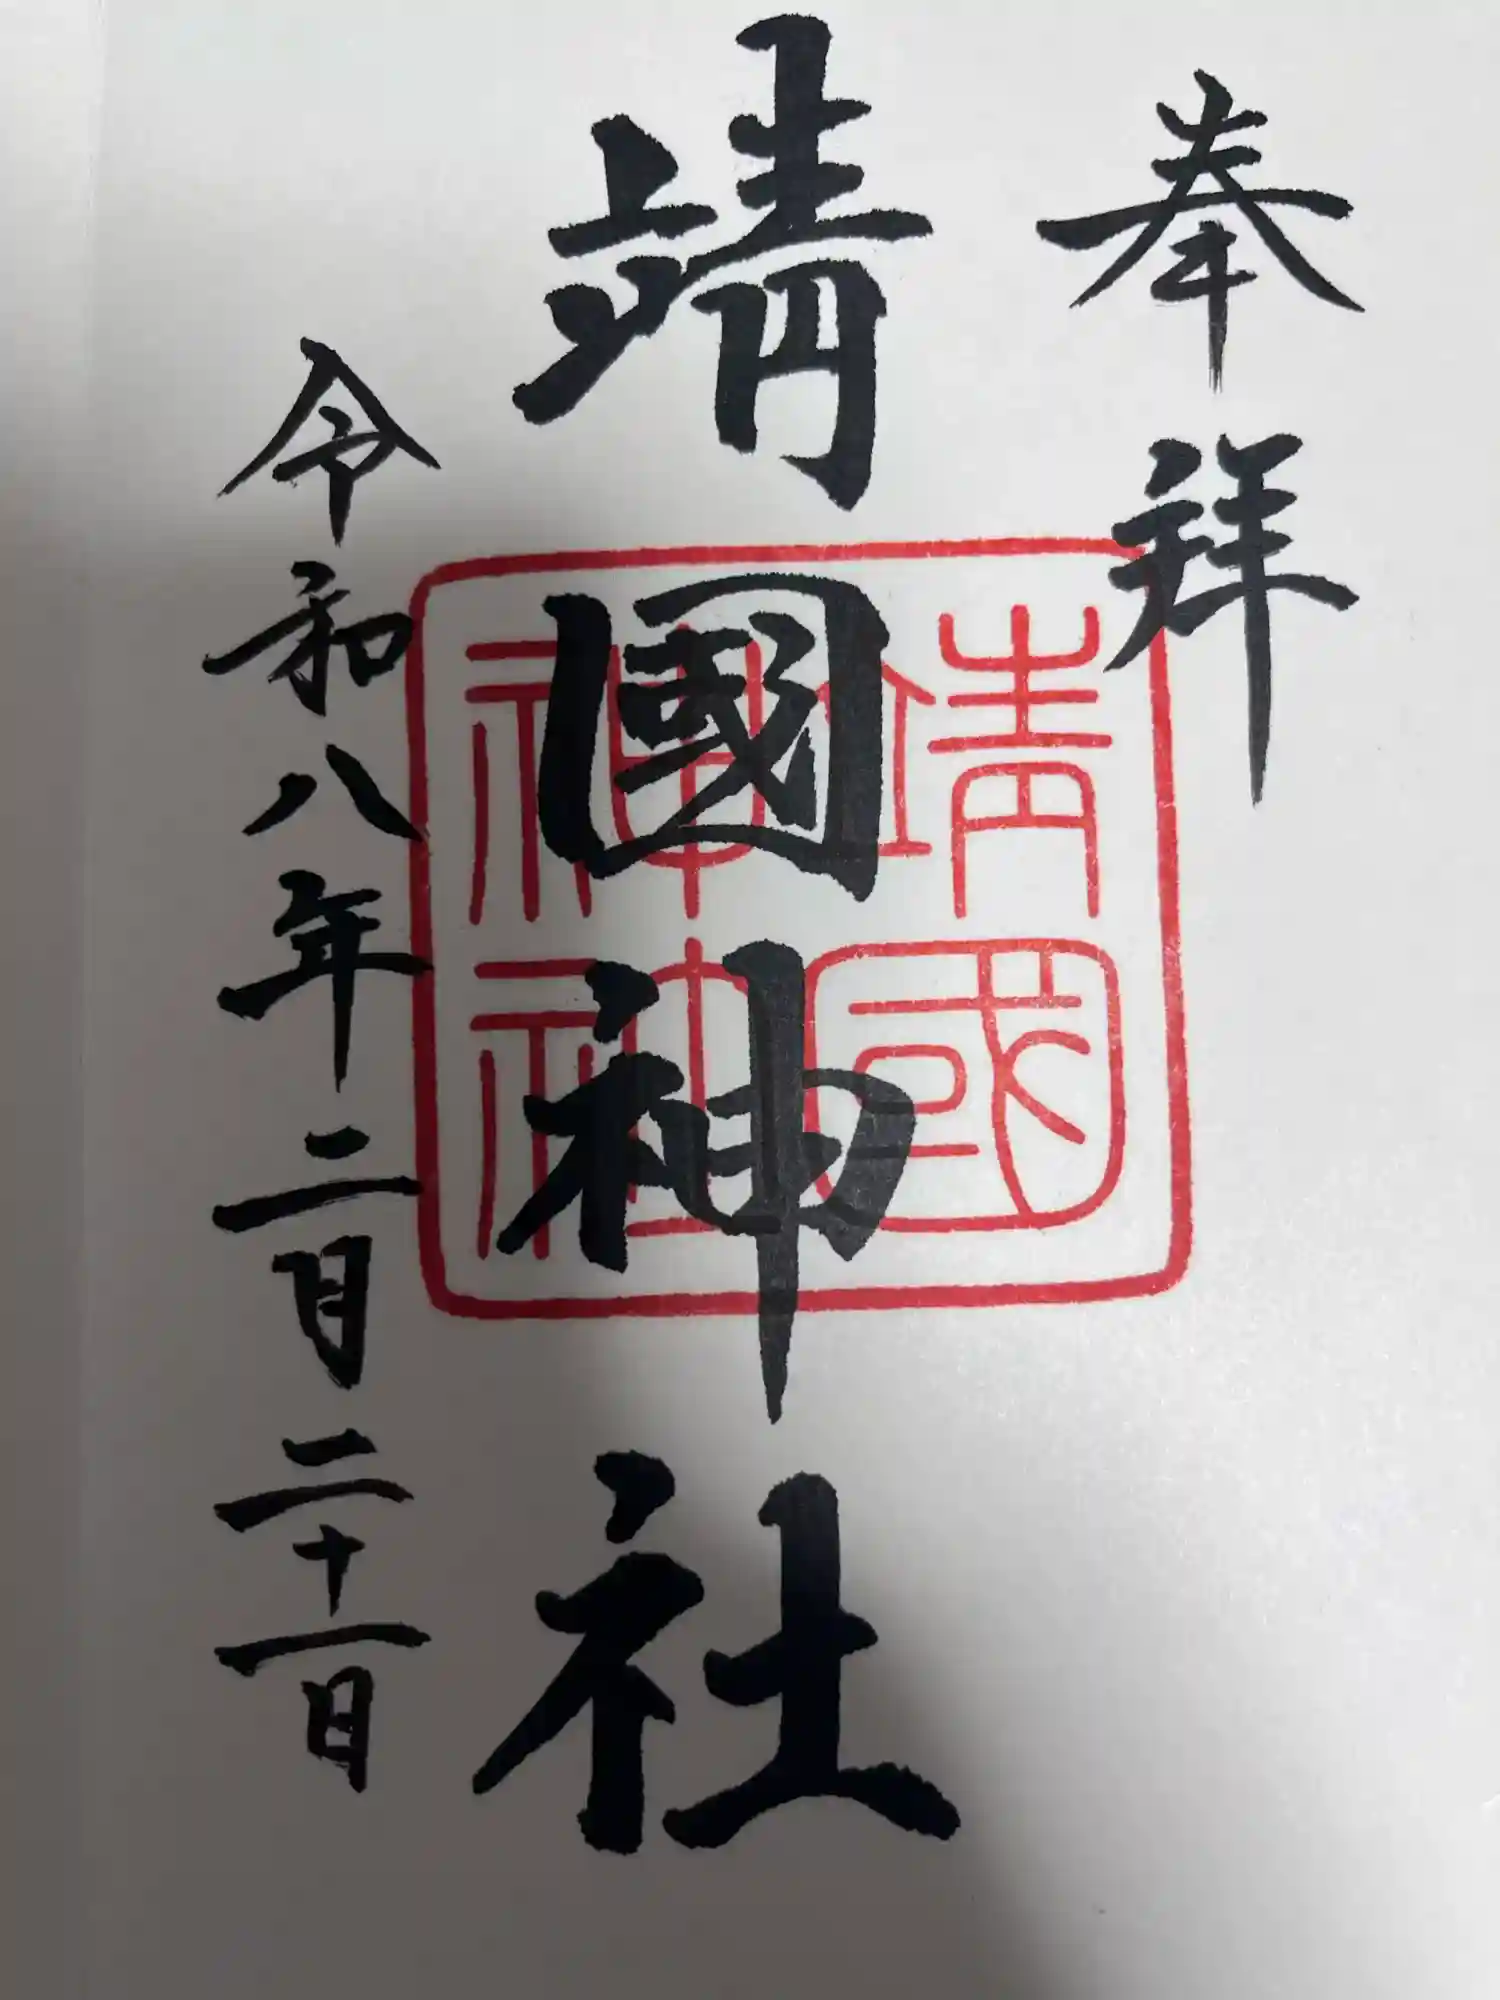 奉拝
靖國神社
令和八年二月二十一日
靖國
神社